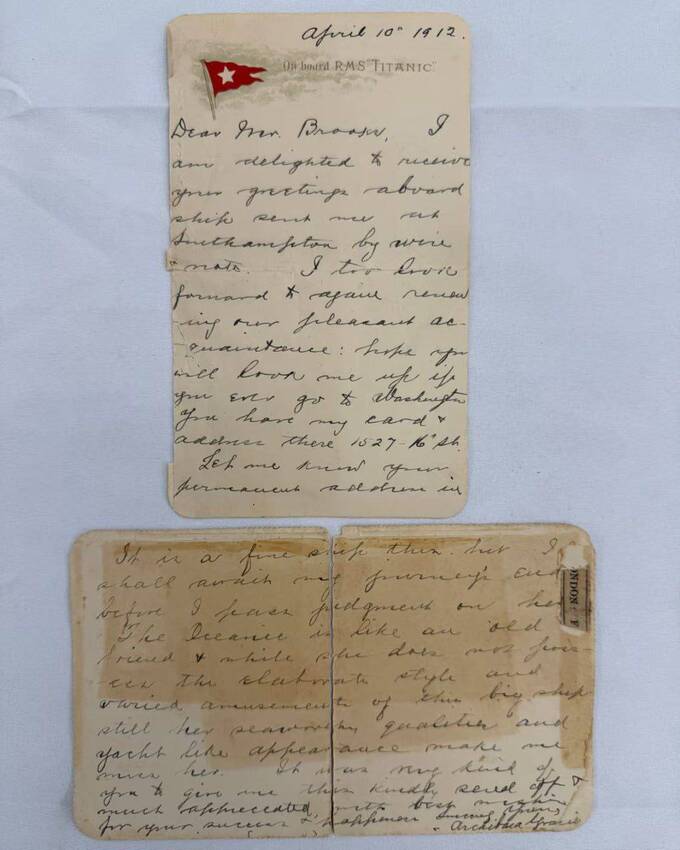 April 10" 1912.
On board RMS "TITANIC".
Dear Mr. Brooks, I
am delighted to receive
your greetings aboard
ship sent me at
Southampton by wire
& note. I too look
forward to again renew
-ing our pleasant ac-
quaintance: hope you
will look me up if
you ever go to Washington
You have my card &
address there 1527-16" St.
Let me know your
permanent address in
It is a fine ship this but I
shall await my journey's end
before I pass judgment on her
The Oceanic is like an old
friend & while she does not poss-
ess the elaborate style and
varied amusements of this big ship
still her seaworthy qualities and
yacht like appearance make me
miss her. It was very kind of
you to give me this kindly send off &
much appreciated, with best wishes
for your success & happiness Sincerely Yours,
Archibald Gracie
NDON